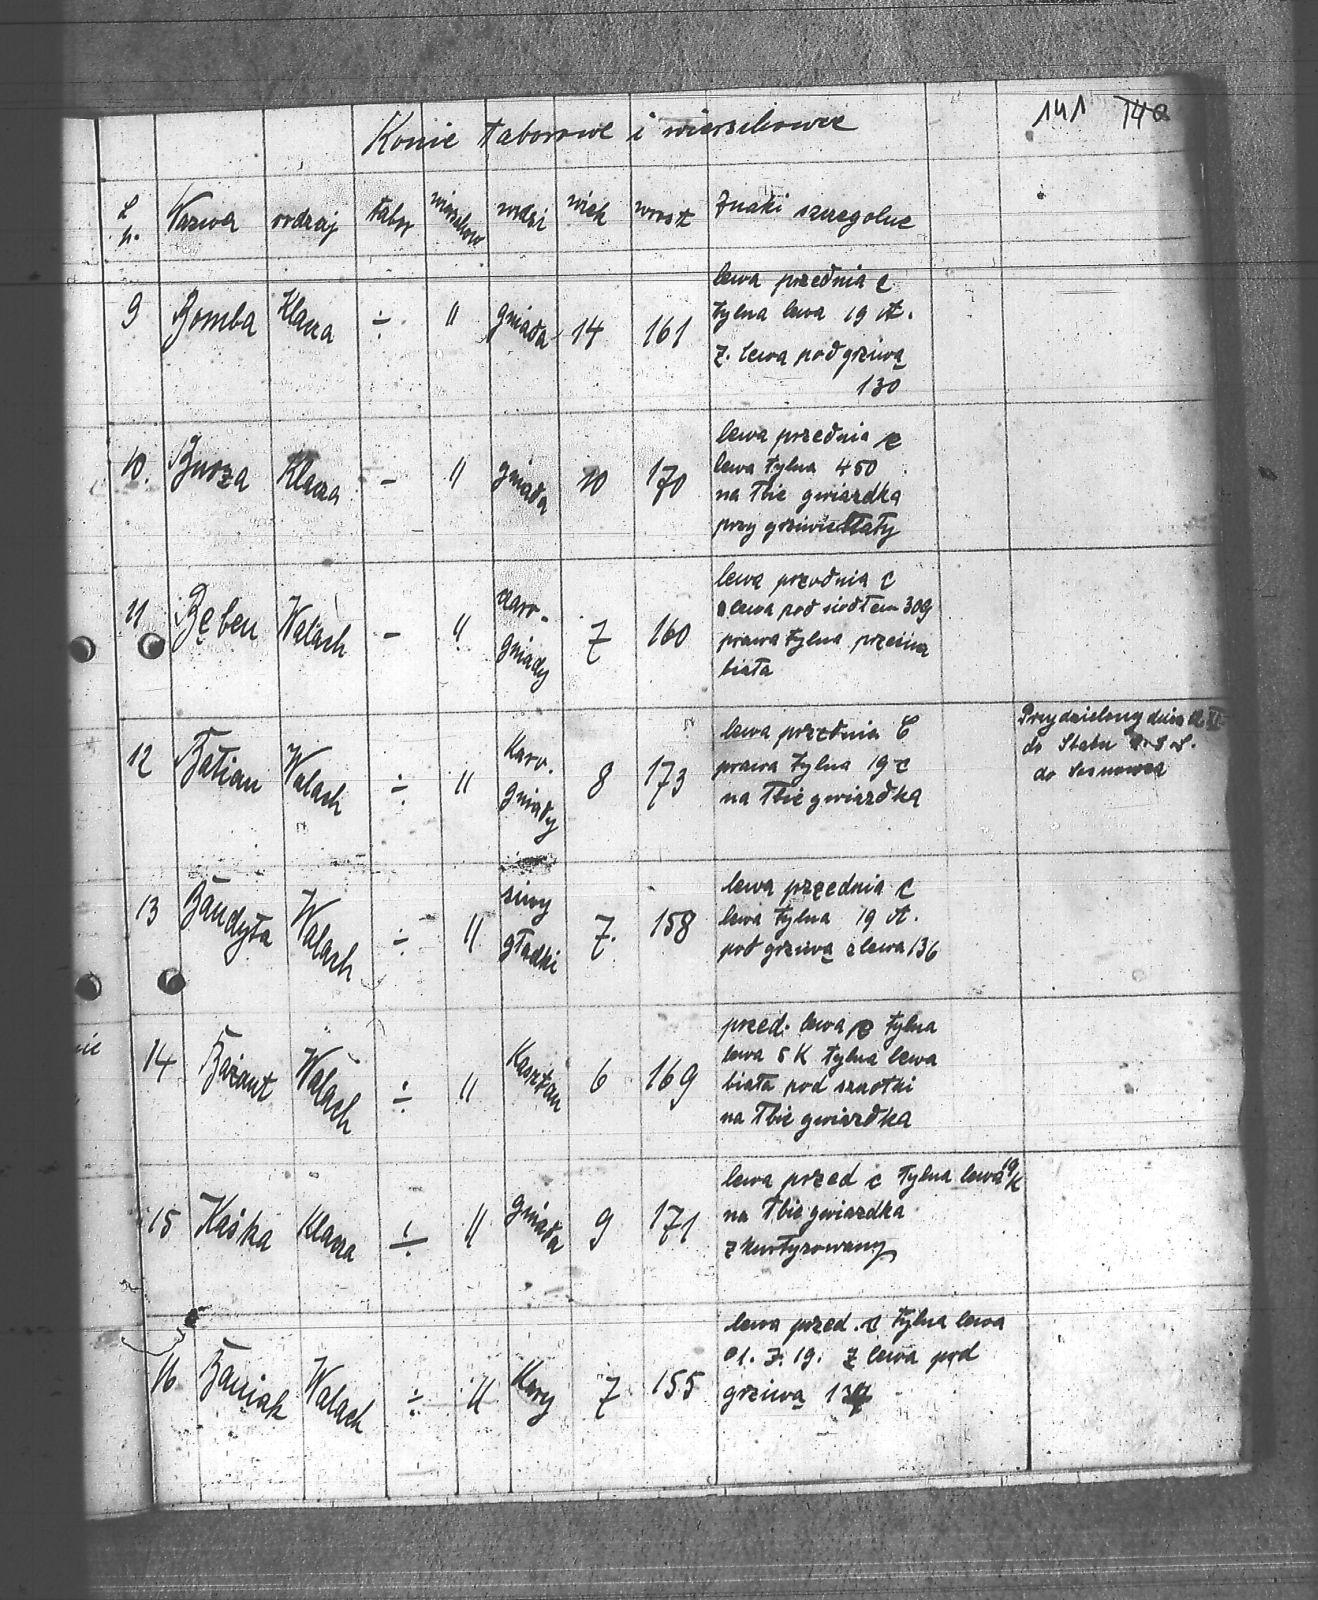 141 140
Konie taborowe i wierzchowce
L. p. Nazwa rodzaj tabor wierzchow maść wiek wzrost Znaki szczegolne
9 Bomba Klacz ÷ " gniada 14 161
lewa przednia C
tylna lewa 19 A.
z. lewa pod grziwą
130
10. Burza Klacz - " gniada 10 170
lewa przednia C
lewa tylna 450
na łbie gwiazdka
przy grziwie
11 Bęben Wałach - " Karo-
gniady 7 160
lewa przednia C
z lewa pod siodłem 309
prawa tylna
biała
12 Wałach ÷ " Karo.
gniady 8 173
lewa przednia C
prawa tylna 19 C
na łbie gwiazdka
Przydzielony dnia
do Sztabu
do Sosnowca
13 Bandyta Wałach ÷ " siwy
gładki 7. 158
lewa przednia C
lewa tylna 19 A.
pod grziwą z lewa 136
14 Bażant Wałach ÷ " Kasztan 6 169
przed. lewa C tylna
lewa 5 K tylna lewa
biała pod szczotki
na łbie gwiazdka
15 Kaśka Klacz ÷ " gniada 9 171
lewa przed C tylna lewa 19 K
na łbie gwiazdka
16 Wałach ÷ " Kary 7 155
lewa przed. C tylna lewa
01. 7. 19. z lewa pod
grziwą 137